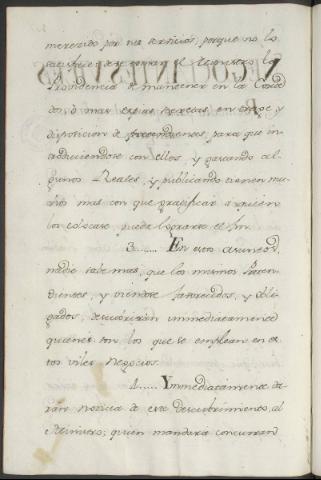 merecido por sus servicios, porque no lo
de tomar el Ministro la
Providencia de mantener en la Corte
dos, ò mas espias secretas, en trage, y
disposicion de Pretendientes, para que in-
troduciendose con ellos, y gastando al-
gunos Reales, y publicando tienen mu-
chos mas con que gratificar à quien
los colocare, puede lograrse el fin.
3...... En estos asuntos,
nadie sabe mas, que los mismos Preten-
dientes, y viendose favorecidos, y obli-
gados, descubriràn immediatamente
quienes son los que se emplean en es-
tos viles negocios.
4...... Ymmediatamente da-
ràn noticia de este descubrimiento, al
Ministro; quien mandarà concurran